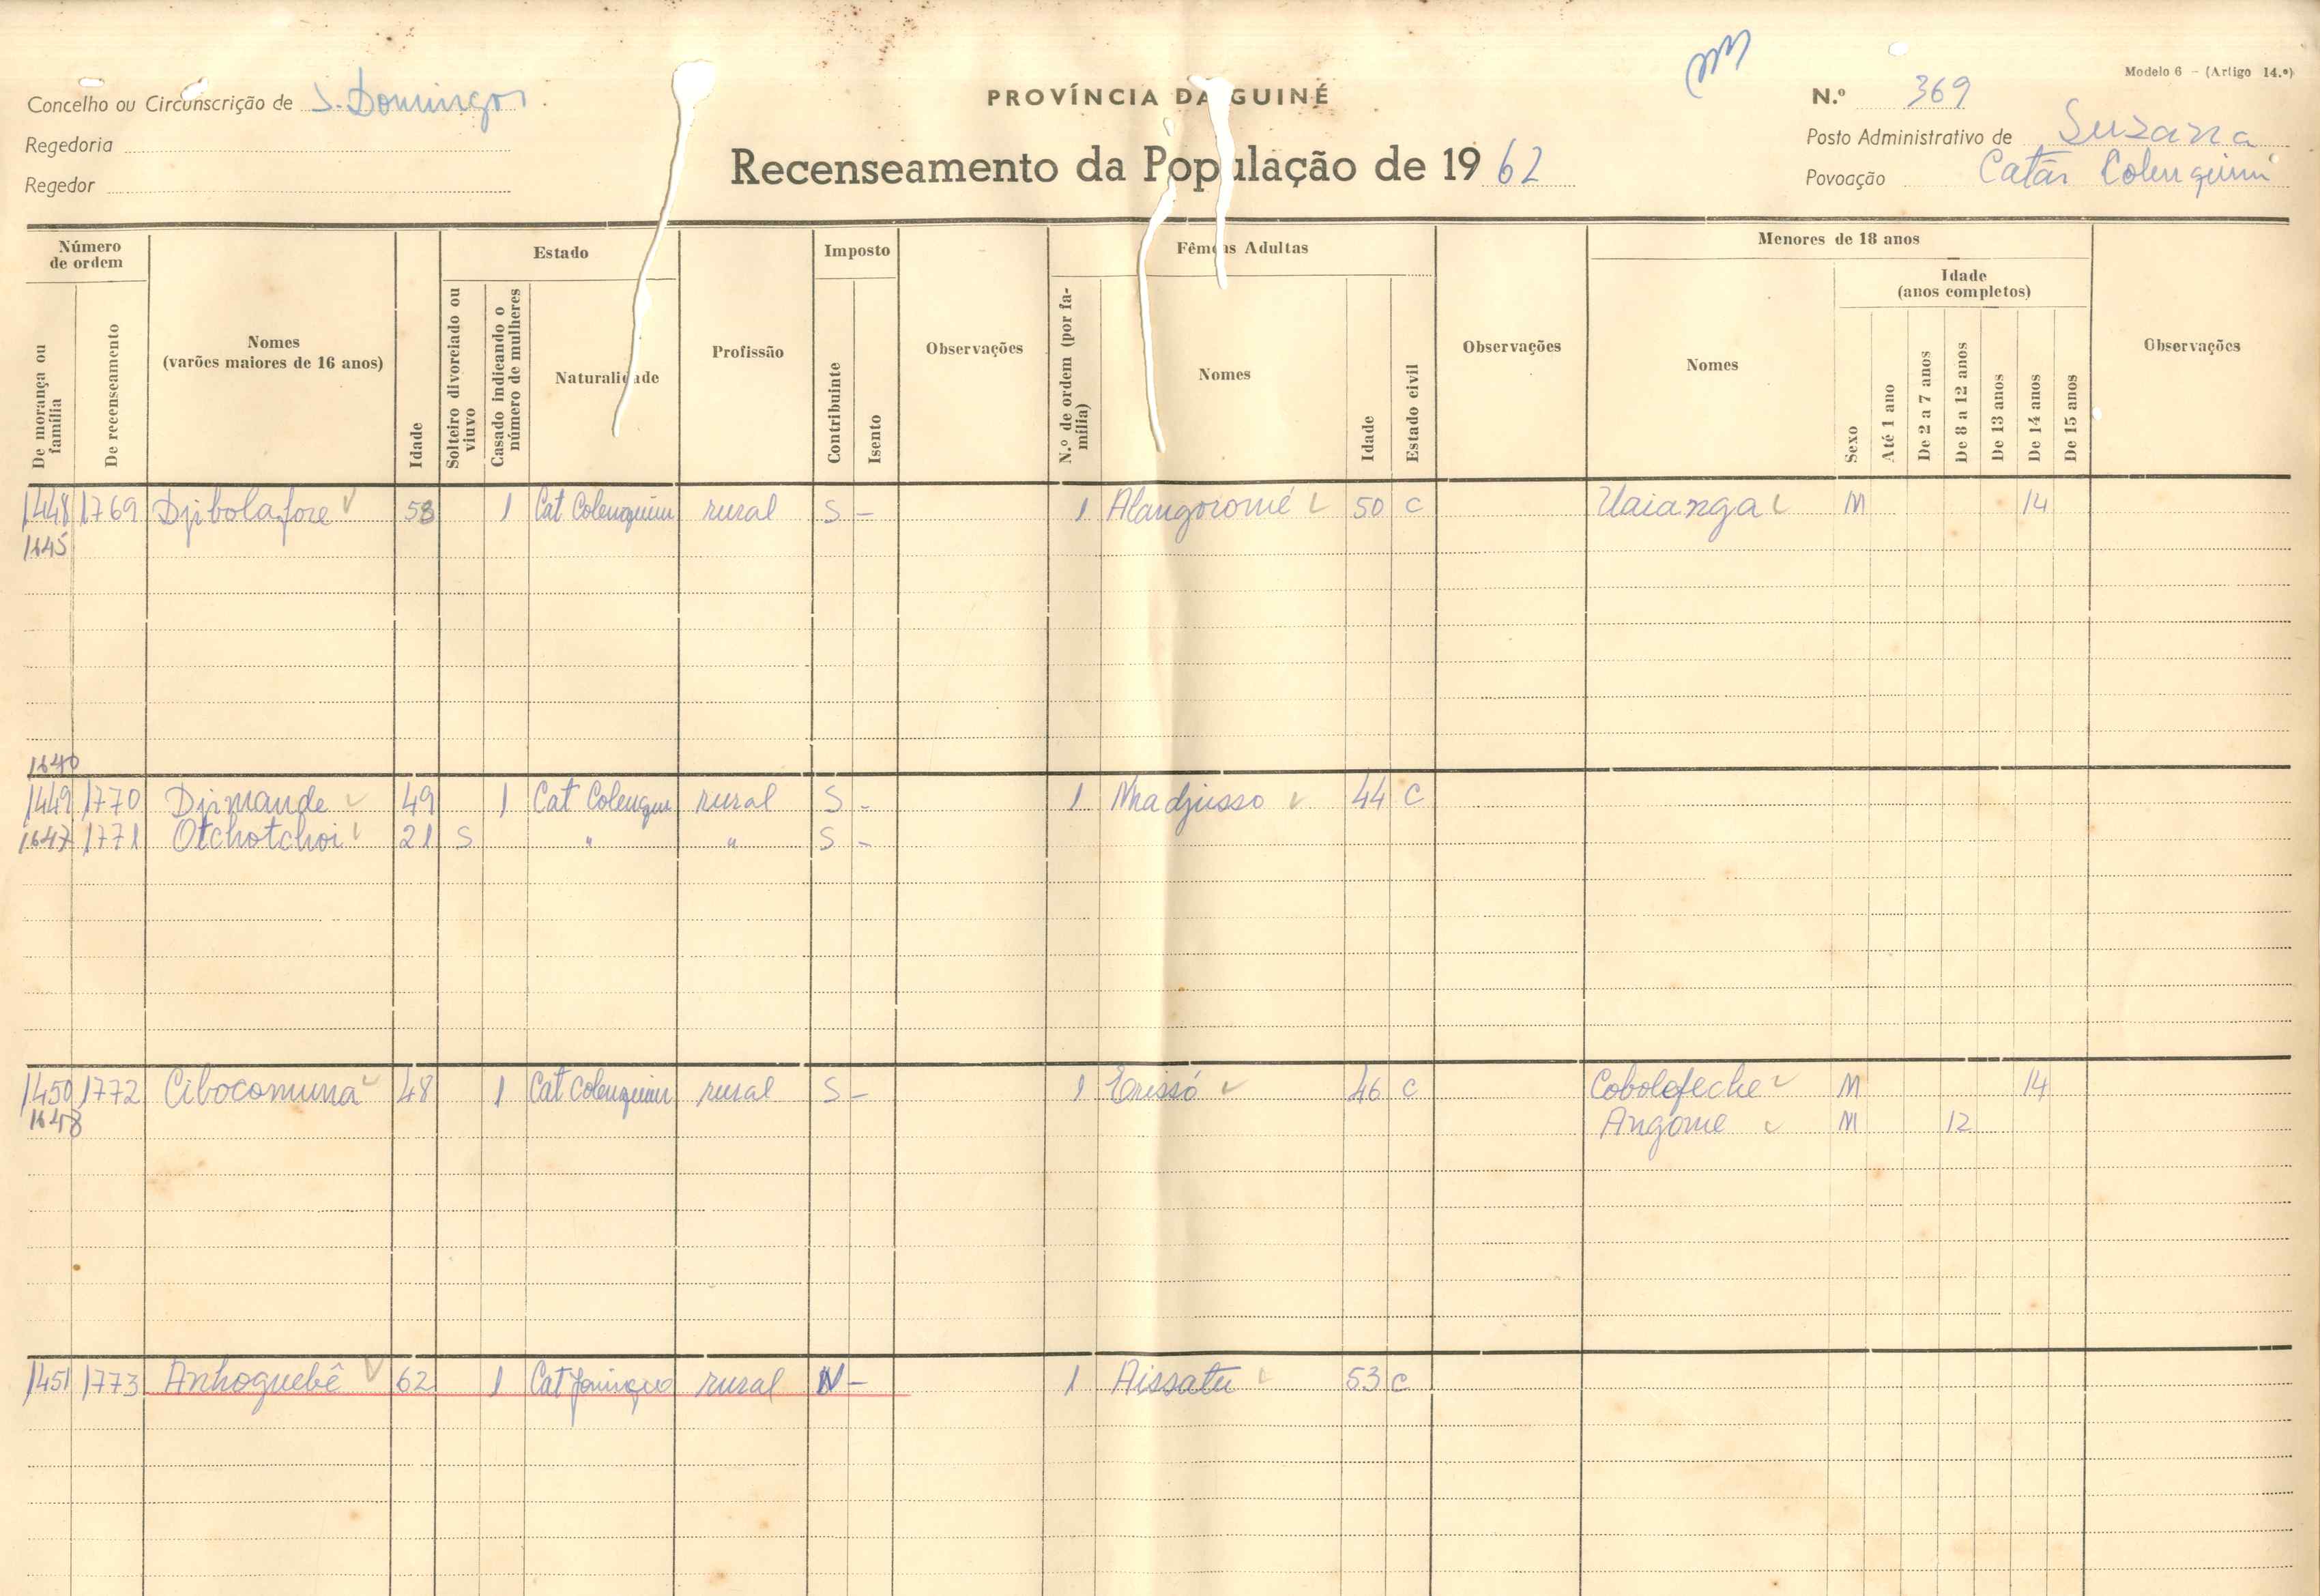 Modelo 6 - (Artigo 14.º)
Concelho ou Circunscrição de S. Domingos
PROVÍNCIA DA GUINÉ
N.º 369
Regedoria
Recenseamento da População de 1962
Posto Administrativo de Suzana
Regedor
Povoação Catão Colenquim
Número de ordem
De morança ou família
De recenseamento
Nomes
(varões maiores de 16 anos)
Idade
Estado
Solteiro divorciado ou viuvo
Casado indicando o número de mulheres
Naturalidade
Profissão
Imposto
Contribuinte
Isento
Observações
Fêmeas Adultas
N.º de ordem (por família)
Nomes
Idade
Estado civil
Observações
Menores de 18 anos
Nomes
Sexo
Idade
(anos completos)
Até 1 ano
De 2 a 7 anos
De 8 a 12 anos
De 13 anos
De 14 anos
De 15 anos
Observações
1448 1769 Djibolafore 58 1 Cat Colenquim rural S - 1 Alangoromé 50 C Uaianga M 14
1645
1449 1770 Djimande 49 1 Cat Colenqum rural S - 1 Nhadjusso 44 C
1647 1771 Otchotchoi 21 S " " S -
1450 1772 Cibocomuna 48 1 Cat Colenquim rural S - 1 Erissó 46 C Cobolefeche M 14
1648 Angome M 12
1451 1773 Anhoguebê 62 1 Cat rural N - 1 Aissatu 53 C